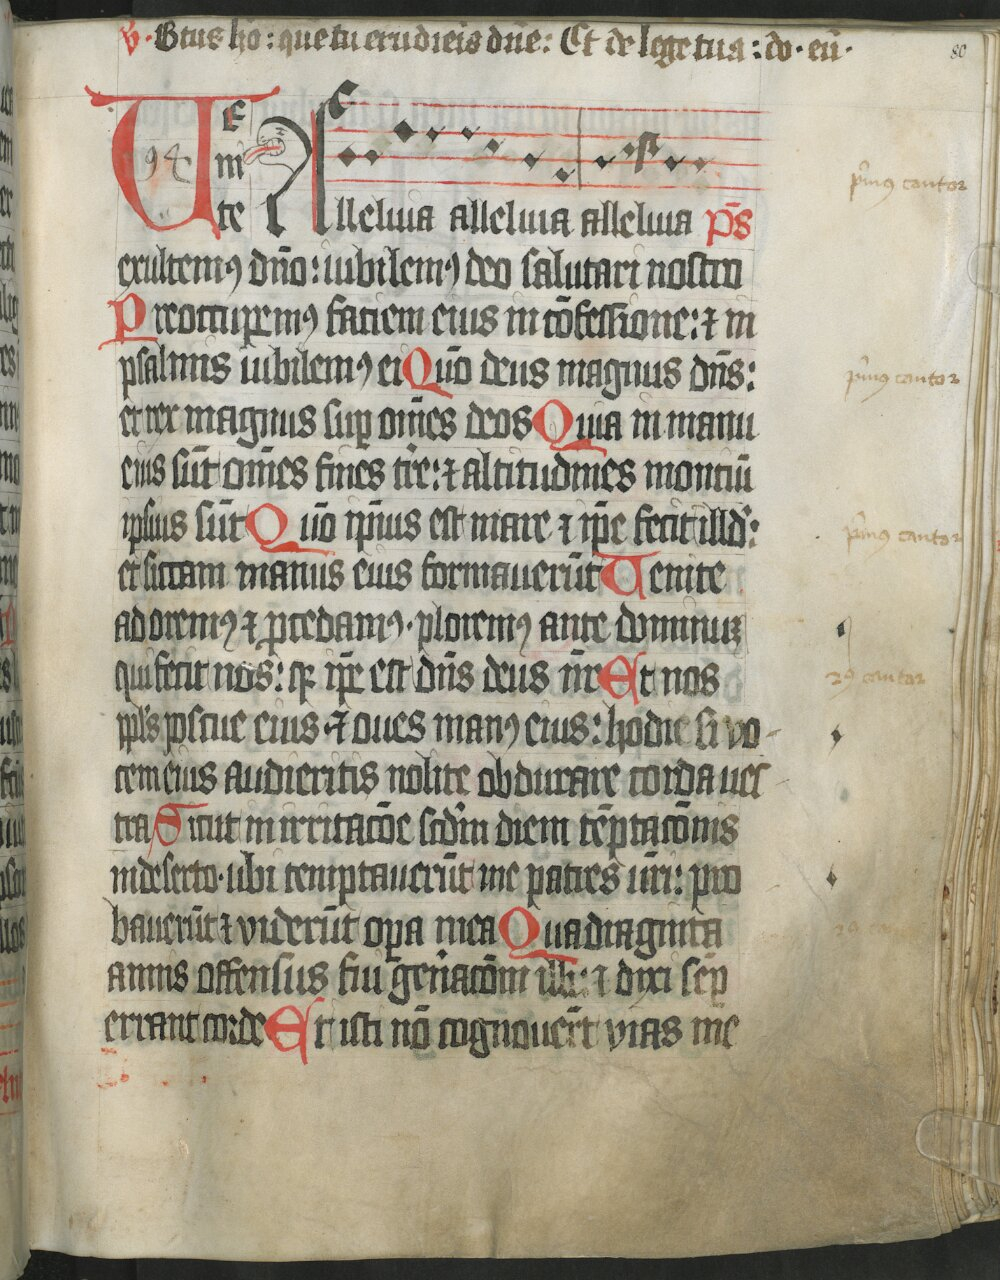 v̄. Btus ho: que tu erudieis dn̄e: Et de lege tua: do. eū.
80
Ve
94 ni
te Alleluia alleluia alleluia p̄s
exultemꝰ dn̄o: iubilemꝰ deo salutari nostro
Preoccupemꝰ faciem eius in cōfessione: ⁊ in
psalmis iubilemꝰ ei Qm̄o deus magnus dn̄s:
et rex magnus suꝑ om̄es deos Quia in manu
eius sūt om̄es fines tr̄e: ⁊ altitudines montiū
ipsius sūt Qm̄o ip̄ius est mare ⁊ ip̄e fecit illd:
et siccam manus eius formauerūt Uenite
adoremꝰ ⁊ ꝓcedamꝰ. ploremꝰ ante dominuꝫ
qui fecit nos: qꝛ ip̄e est dn̄s deus nr̄ Et nos
ppl̄s pascue eius ⁊ oues manꝰ eius: hodie si vo-
cem eius audieritis nolite obdurare corda ues
tra Sicut in irritacōe scd̄m diem tēptacōnis
in deserto. ubi temptauerūt me patres ur̄i: pro
bauerūt ⁊ viderūt oꝑa mea Quadraginta
annis offensus fui gen̄acōni illi: ⁊ dixi semꝑ
errant corde Et isti nō cognouer̄t vias me
prīꝰ cantor
prīꝰ cantor
prīꝰ cantor
2ꝰ cantor